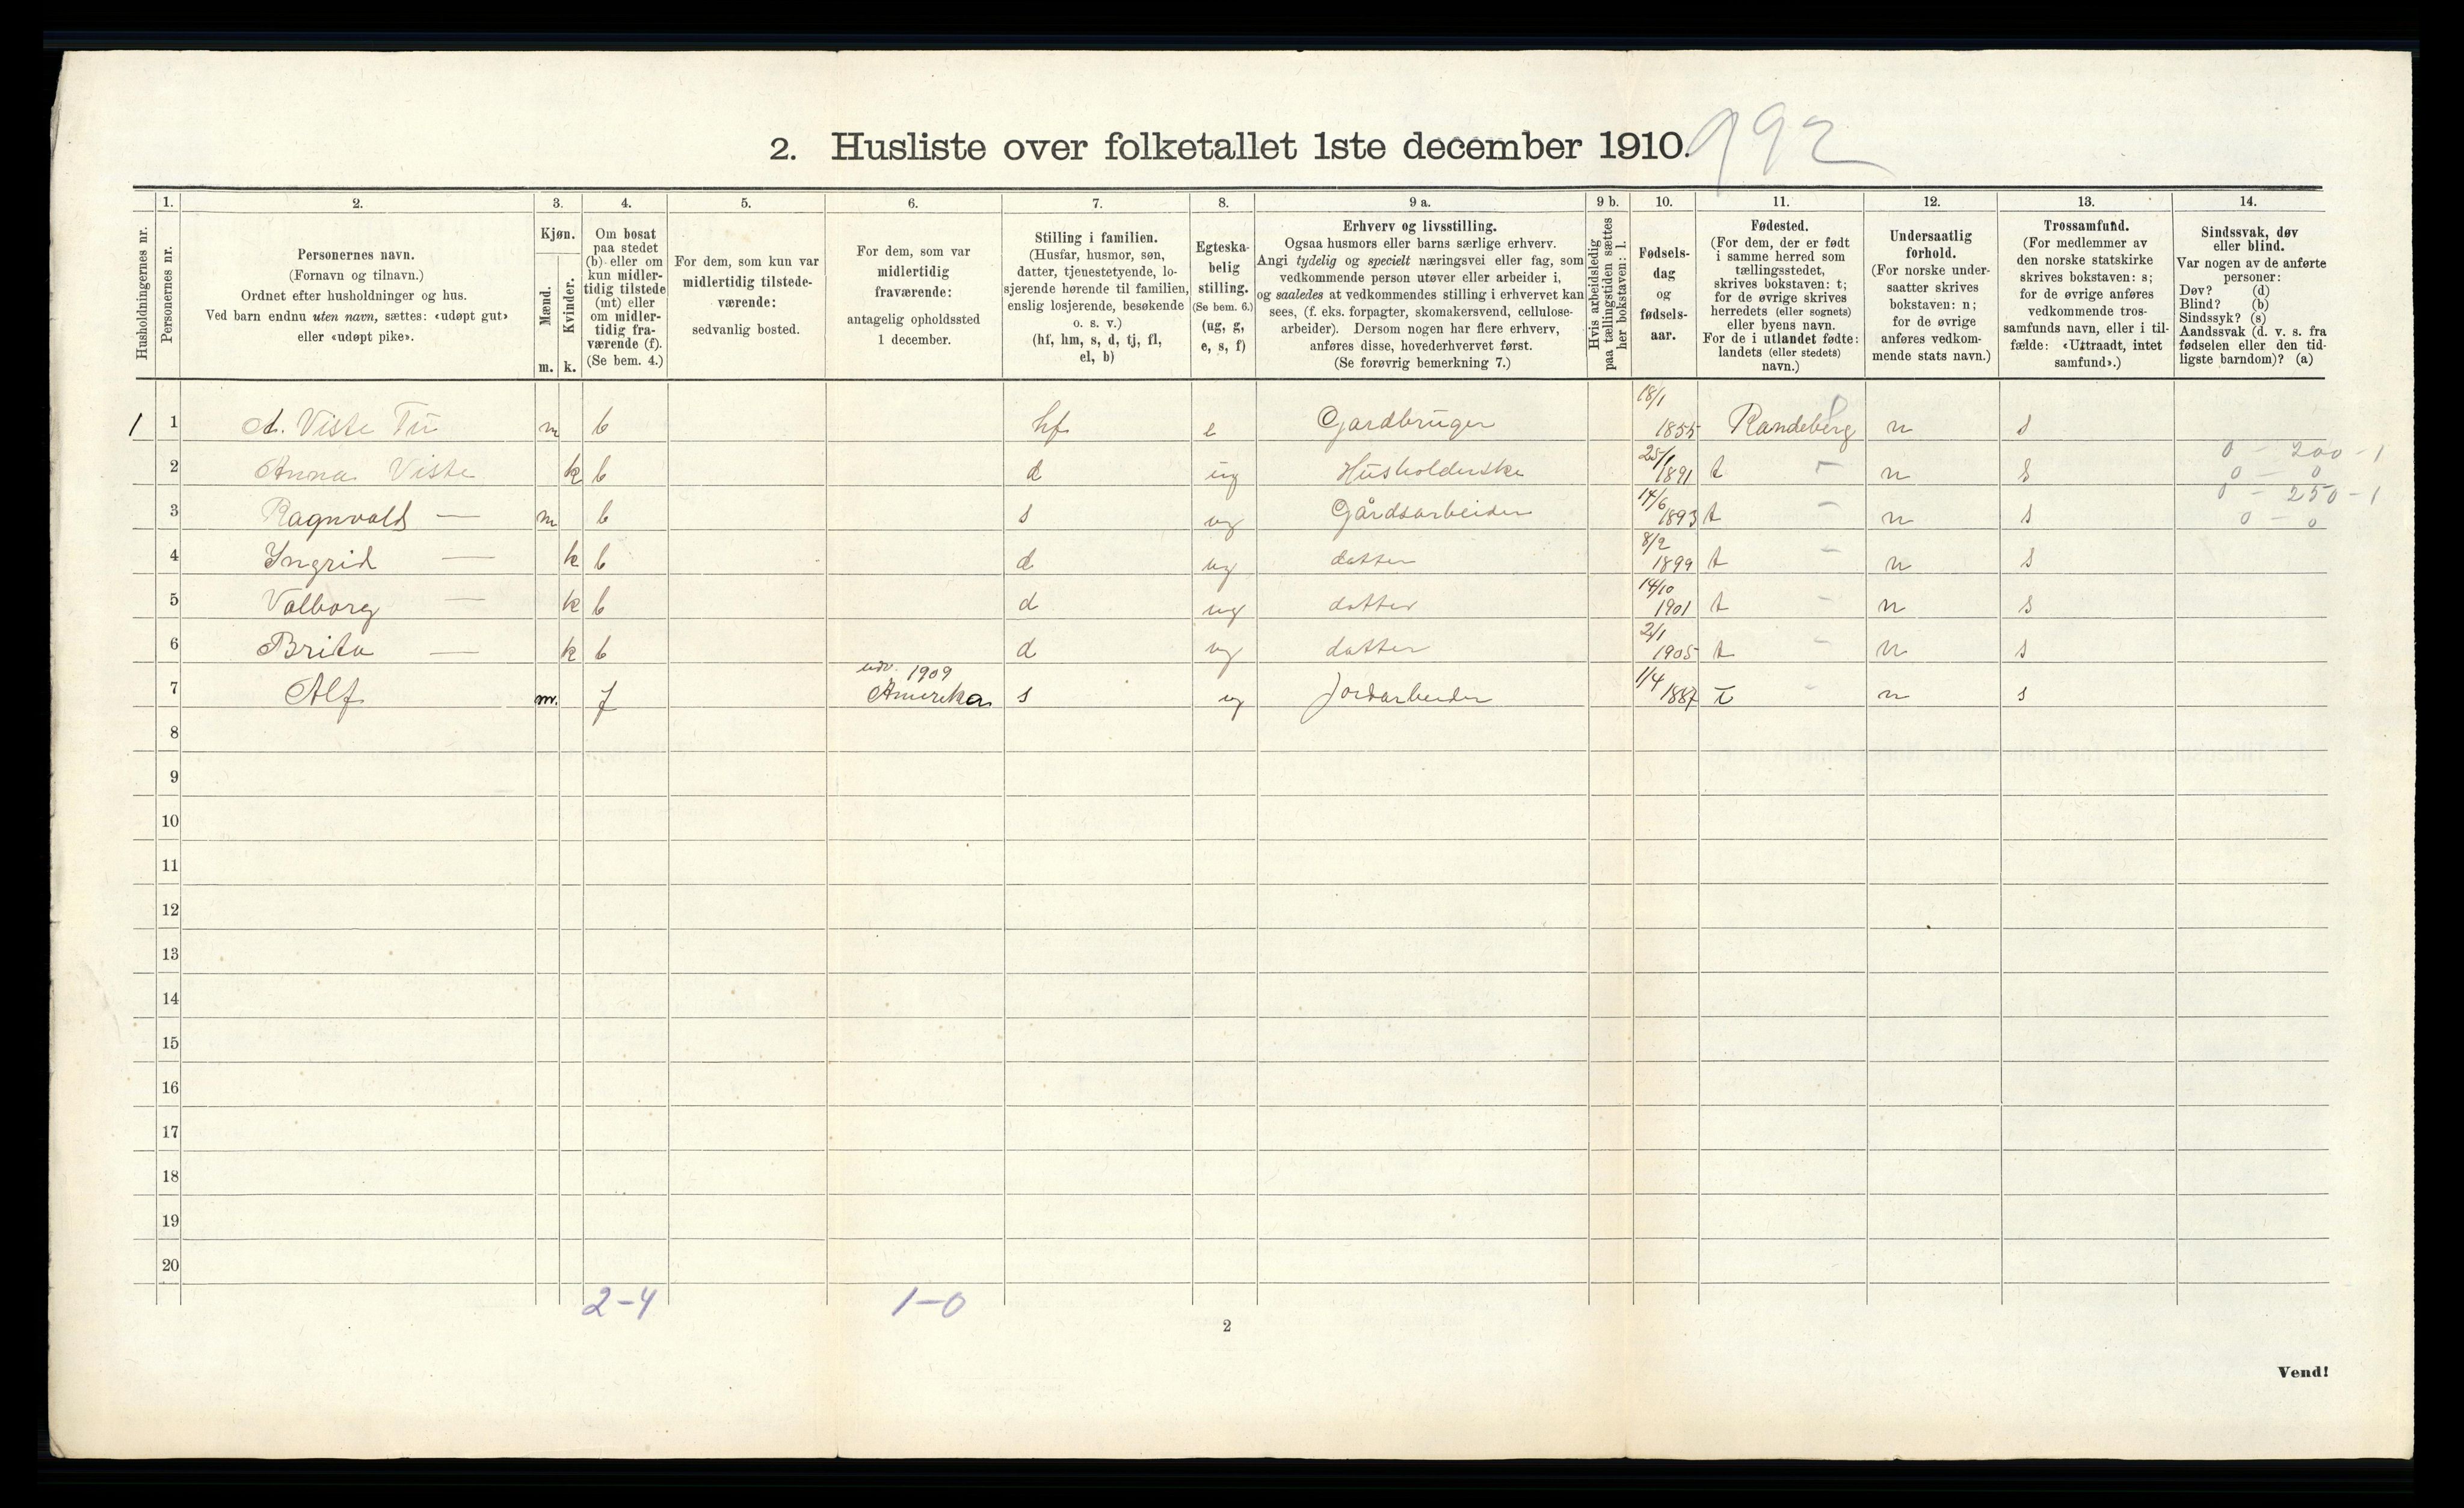 2. Husliste over folketallet 1ste december 1910.
992
Husholdningernes nr.
1.
Personernes nr.
2.
Personernes navn.
(Fornavn og tilnavn.)
Ordnet efter husholdninger og hus.
Ved barn endnu uten navn, sættes: «udøpt gut»
eller «udøpt pike».
3.
Kjøn.
Mænd.
Kvinder.
m. k.
4.
Om bosat
paa stedet
(b) eller om
kun midler-
tidig tilstede
(mt) eller
om midler-
tidig fra-
værende (f).
(Se bem. 4.)
5.
For dem, som kun var
midlertidig tilstede-
værende:
sedvanlig bosted.
6.
For dem, som var
midlertidig
fraværende:
antagelig opholdssted
1 december.
7.
Stilling i familien.
(Husfar, husmor, søn,
datter, tjenestetyende, lo-
sjerende hørende til familien,
enslig losjerende, besøkende
o. s. v.)
(hf, hm, s, d, tj, fl,
el, b)
8.
Egteska-
belig
stilling.
(Se bem. 6.)
(ug, g,
e, s, f)
9 a.
Erhverv og livsstilling.
Ogsaa husmors eller barns særlige erhverv.
Angi tydelig og specielt næringsvei eller fag, som
vedkommende person utøver eller arbeider i,
og saaledes at vedkommendes stilling i erhvervet kan
sees, (f. eks. forpagter, skomakersvend, cellulose-
arbeider). Dersom nogen har flere erhverv,
anføres disse, hovederhvervet først.
(Se forøvrig bemerkning 7.)
9 b.
Hvis arbeidsledig
paa tællingstiden sættes
her bokstaven: l.
10.
Fødsels-
dag
og
fødsels-
aar.
11.
Fødested.
(For dem, der er født
i samme herred som
tællingsstedet,
skrives bokstaven: t;
for de øvrige skrives
herredets (eller sognets)
eller byens navn.
For de i utlandet fødte:
landets (eller stedets)
navn.)
12.
Undersaatlig
forhold.
(For norske under-
saatter skrives
bokstaven: n;
for de øvrige
anføres vedkom-
mende stats navn.)
13.
Trossamfund.
(For medlemmer av
den norske statskirke
skrives bokstaven: s;
for de øvrige anføres
vedkommende tros-
samfunds navn, eller i til-
fælde: «Uttraadt, intet
samfund».)
14.
Sindssvak, døv
eller blind.
Var nogen av de anførte
personer:
Døv? (d)
Blind? (b)
Sindssyk? (s)
Aandssvak (d. v. s. fra
fødselen eller den tid-
ligste barndom)? (a)
1 1 A. Viste Tu m b hf e Gardbruger 18/1 1855 Randeberg n s
0 - 200 - 1
2 Anna Viste k b d ug Husholderske 25/1 1891 t - n s 0 - 0
0 - 250 - 1
3 Ragnvald — m b s ug Gårdsarbeider 14/6 1893 t - n s 0 - 0
4 Yngrid — k b d ug datter 8/2 1899 t - n s
5 Valborg — k b d ug datter 14/10 1901 t - n s
6 Brita — k b d ug datter 2/1 1905 t - n s
1909
7 Alf m. f Amerika s ug Jordarbeider 1/4 1887 t - n s
8
9
10
11
12
13
14
15
16
17
18
19
20
2-4 1-0
2
Vend!